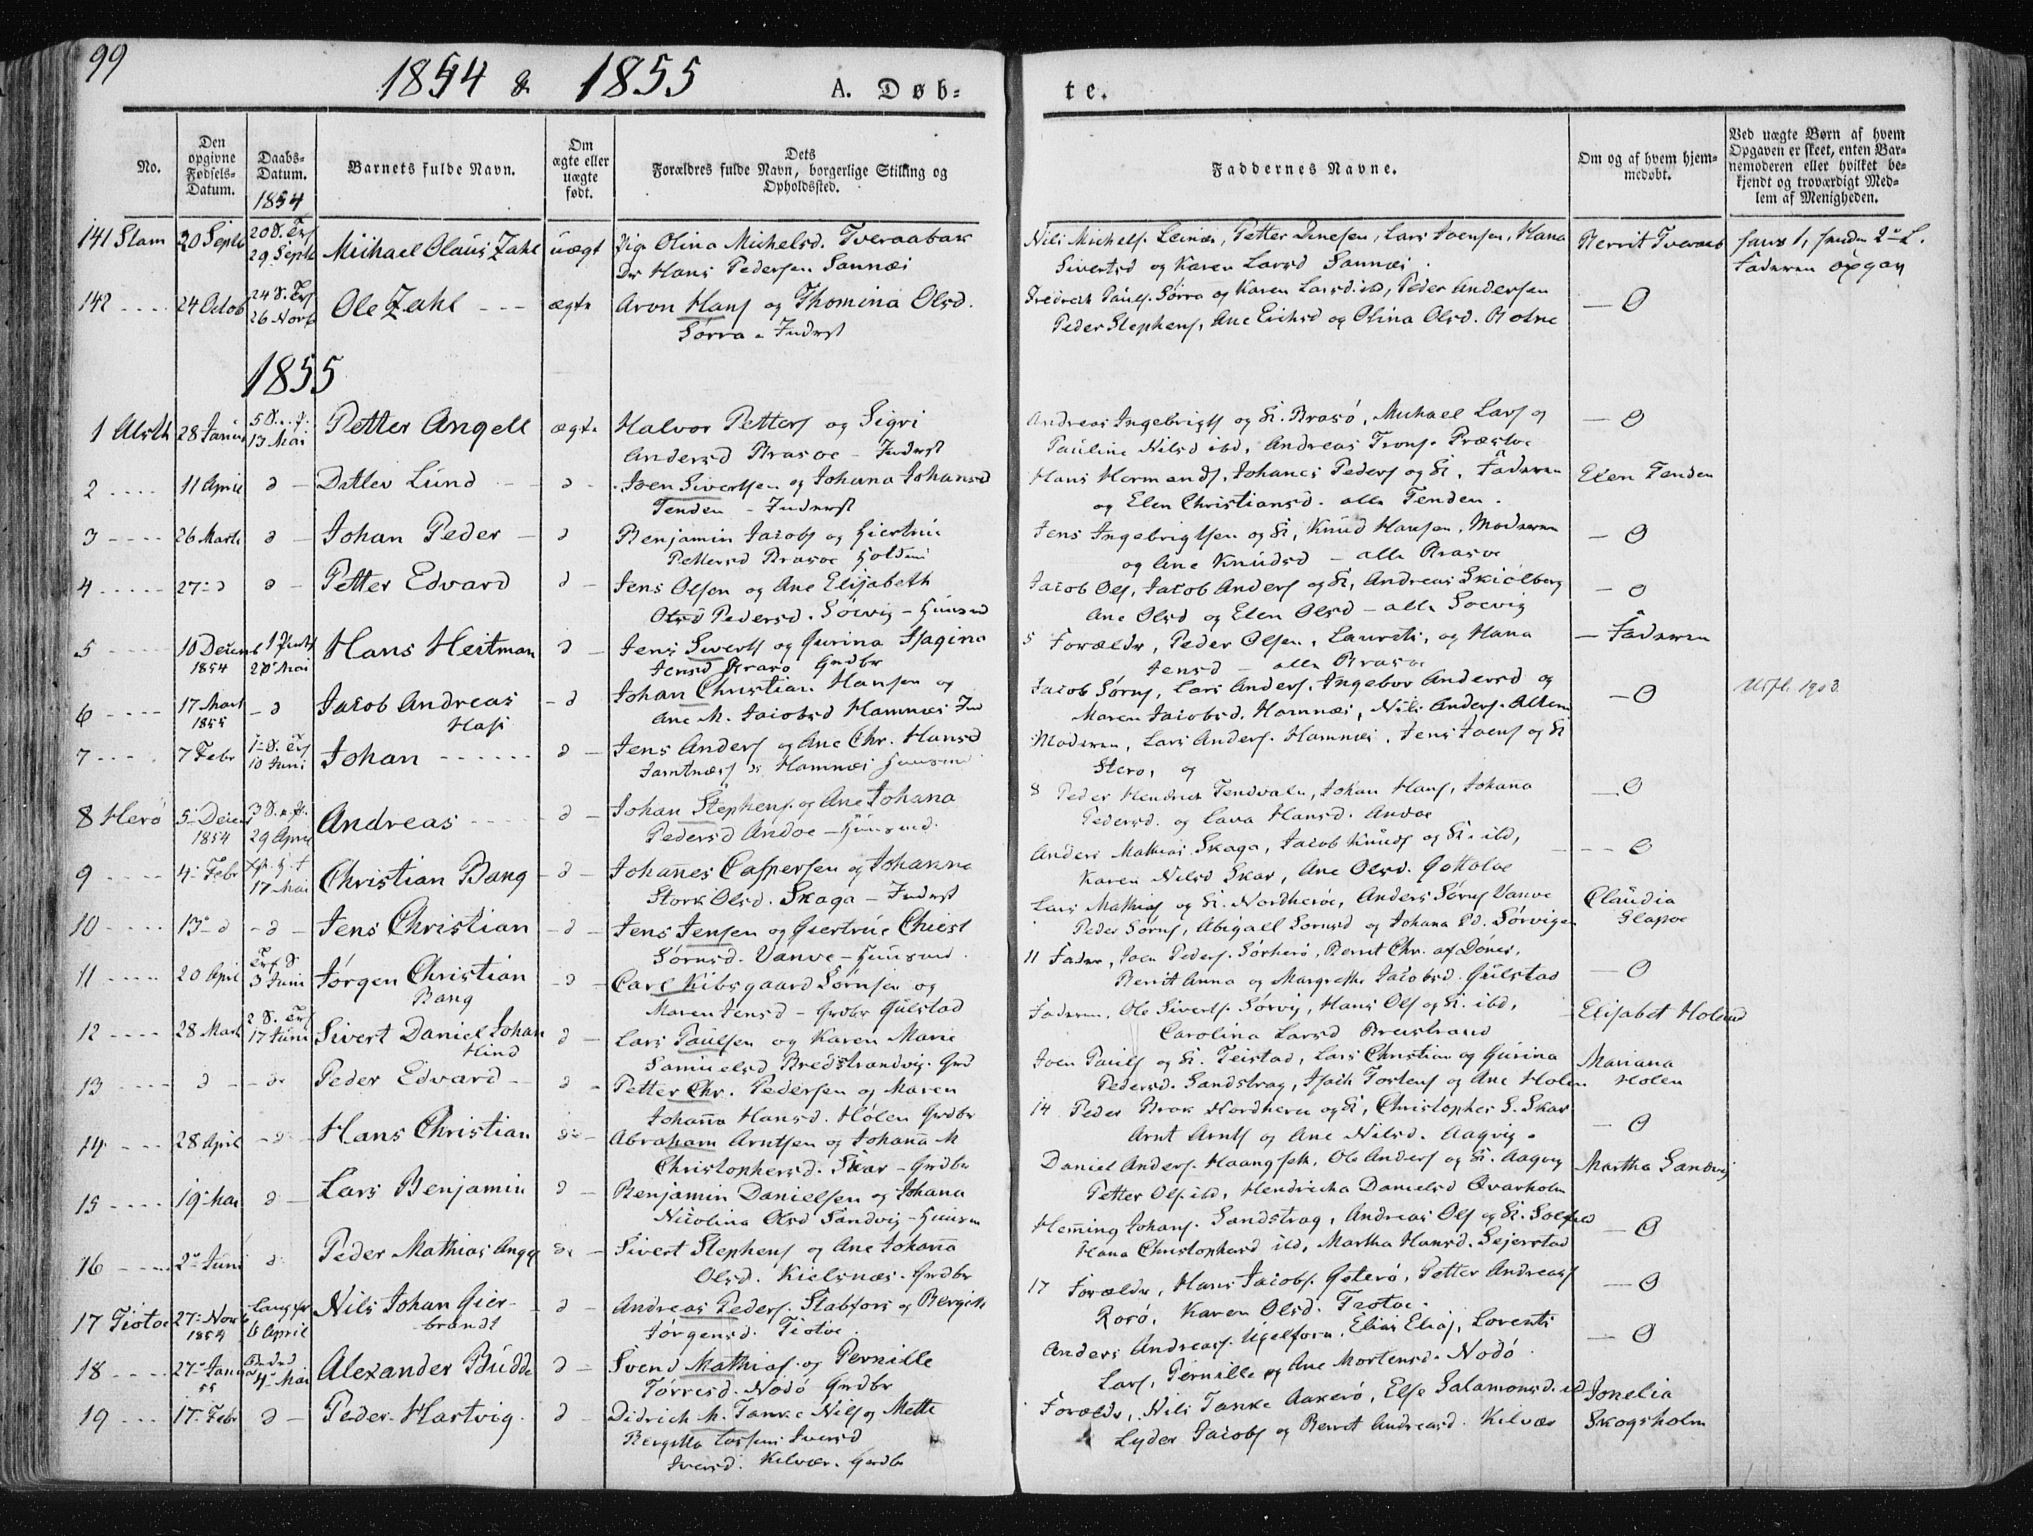 99
1854 & 1855
A. Døb-
te.
No.
Den opgivne Fødsels-Datum.
Daabs-Datum.
1854
Barnets fulde Navn.
Om ægte eller uægte født.
Dets Forældres fulde Navn, borgerlige Stilling og Opholdssted.
Faddernes Navne.
Om og af hvem hjem-medøbt.
Ved uægte Børn af hvem Opgaven er skeet, enten Bar-nemoderen eller hvilket be-kjendt og troværdigt Med-lem af Menigheden.
141 Stam 20 Septb 29 Septb Michael Olaus Zahl uægt Pig. Olina Michelsd. Tveraabak
Hans Pedersen Sannæs
Nils Michels. Leinæs, Petter Denesen, Lars Joensen, Hana
Sivertsd og Karen Larsd Sannæs.
Berrit Tveraab
Faderen opgav
142 24 Octob 26 Novb Ole Zahl ægte Aron Hans og Thomina Olsd.
Sørra - Inderst
Fredrich Pauls. Sørra og Karen Larsd. ibd, Peder Andersen
Peder Stephens, Ane Eriksd og Olina Olsd.
0
1855
1 Alsth 28 Januar 13 Mai Petter Angell ægte Halvor Petters og Sigri
Andersd Brasøe - Inderst
Andreas Ingebrigts og K. Brasø, Michael Lars og
Pauline Nilsd ibd, Andreas Trons. Præstøe
0
2 11 April d Detlev Lund d Joen Sivertsen og Johana Johansd
Tenden - Inderst
Hans Hermands, Johanes Peders og K., Faderen
og Elen Christiansd. alle Tenden.
Elen Tenden
3 26 Marts d Johan Peder d Benjamin Jacobs og Giertrue
Pettersd Brasøe
Jens Ingebrigtsen og K, Knud Hansen, Moderen
og Ane Knudsd - alle Brasøe
0
4 27 d d Petter Edvard d Jens Olsen og Ane Elisabeth
Pedersd. Søevig - Huusmd
Jacob Ols, Jacob Anders og K, Andreas Skiølberg
Ane Olsd og Elen Olsd - alle Soevig
0
5 10 Decemb 1854 20 Mai Hans Heitman d Jens Siverts og Gurina Hagina
Jensd Brasø Grdbr
5 Forældr, Peder Olsen, Laurets, og Hana
Jensd - alle Brasøe
Faderen
6 17 Mart 1855 d Jacob Andreas
Hass
d Johan Christian Hansen og
Ane M. Jacobsd Hamnæs Ind
Jacob Sørns, Lars Anders, Ingebor Andersd og
Maren Jacobsd. Hamnæs, Nils Anders.
0
1903.
7 7 Febr 10 Juni Johan d Jens Anders og Ane Chr. Hansd
Hamnæs Huusmd
Moderen, Lars Anders. Hamnæs, Jens Joens og K
Stero, og
8 Herø 5 Decem 1854 29 April Andreas d Johan Stephens. og Ane Johana
Pedersd Andøe - Huusmd.
8 Peder Hendrich Tendvaln, Johan Hans, Johanna
Pedersd. og Lava Hansd. Andøe
0
9 4 Febr 17 Mai Christian Bang d Johannes Caspersen og Johanna
Stork Olsd. Skaga - Inderst
Anders Mathias Skaga, Jacob Knuds og K. ibd,
Karen Nilsd Skar, Ane Olsd.
0
10 13 d d Jens Christian d Jens Jensen og Giertrue Chiest
Sørnsd. Vanve - Huusmd.
Lars Mathias og K. Nordherøe, Anders Sørns Vanve
Peder Sørns, Abigael Sornsd og Johana Pd. Sørvigen
Claudia
Slapøe
11 20 April 3 Juni Jørgen Christian
Bang
d Carl Kibsgaard Sørnsen og
Maren Jensd - Grdbr Gulstad
11 Fader, Joen Peders. Sørherø, Berrit Chr. af Dønes,
Berrit Anna og Margrethe Jacobsd. Gulstad
0
12 28 Marts 17 Juni Sivert Daniel Johan
Hind
d Lars Paulsen og Karen Marie
Samuelsd Bredstrandvig. Grd
Faderen, Ole Siverts. Sørvig, Hans Ols og K. ibd,
Carolina Larsd Breistrand
Elisabet Holand
13 d d Peder Edvard d Petter Chr. Pedersen og Maren
Johanna Hansd. Holen Grdbr
Joen Pauls og K. Teistad, Lars Christian og Gurina
Pedersd. Sandstrag, Isach Tostens og Ane Holen
Mariana
Holen
14 28 April d Hans Christian d Abraham Arntsen og Johana M
Christophersd. Skar - Grdbr
14 Peder Brok Nordherø og K, Christopher S. Skar
Arnt Arnts og Ane Nilsd. Aagvig.
0
15 19 Mai d Lars Benjamin d Benjamin Danielsen og Johana
Nicolina Olsd Sandvig - Huusm
Daniel Anders. Haangseth, Ole Anders og K. Aagvig
Petter Ols. ibd, Hendricka Danielsd Qvarholm
Martha Sandvig
16 2 Juni d Peder Mathias Angel d Sivert Stephens og Ane Johanna
Olsd. Kielsnæs. Grdbr
Hemming Johans. Sandstrag, Andreas Ols og K.
Hana Christophersd ibd, Martha Hansd. Sejerstad
0
17 Tiøtøe 27 Novb 1854 April Nils Johan Gier-
brandt
d Andreas Peders. Stabfors og Bergith
Jørgensd. Tiøtøe.
17 Forældr, Hans Jacobs. Geterø, Petter Andreas
Rorø, Karen Olsd.
0
18 27 Janua 55 4 Mai Alexander Budde d Svend Mathias. og Pernille
Torresd. Nodø Grdbr
Anders Andreas. Ugelforn, Elias Elias, Lorents
Lars, Pernille og Ane Mortensd. Nodø.
0
19 17 Febr d Peder Hartvig. d Didrich M. Tanke Nils og Mette
Bergitta Iversd
Iversd. Kilvær. Grdbr
Forældr, Nils Tanke Aakerø, Else Salamonsd. ibd
Lyder Jacobs og Berret Andreasd. Kilvær
Jonelia
Skogsholm